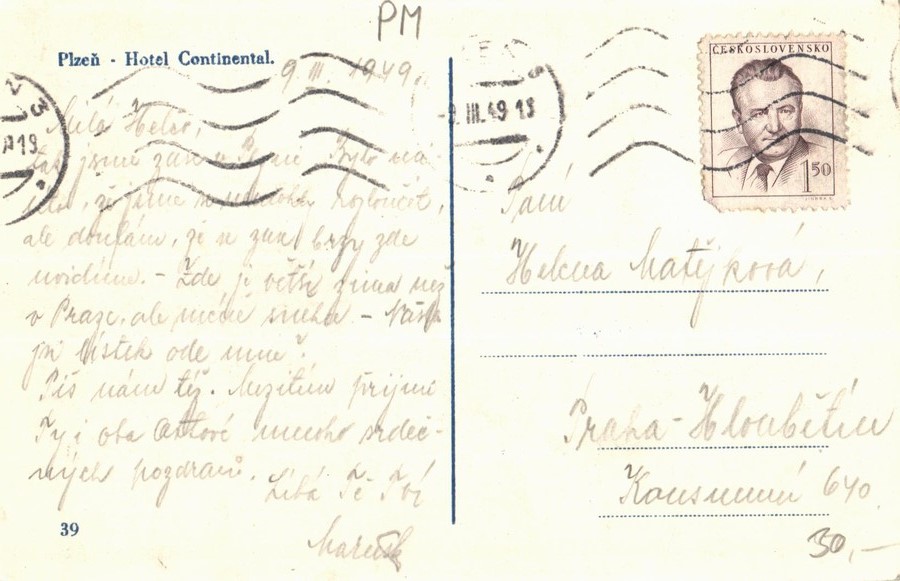 PM
Plzeň - Hotel Continental.
9. III. 1949.
Milá Helčo,
jsme zase v Plzni. Bylo
že jsme se nemohli rozloučit,
ale doufám, že se zase brzy zde
uvidíme. - Zde je větší zima než
v Praze, ale méně sněhu -
lístek ode mne?
Piš nám též. Mezitím přijmi
Ty i oba mnoho srdeč-
ných pozdravů.
Líbá Tě Tvá
39
ČESKOSLOVENSKO
1 50
III. 49 - 13
23
Paní
Helena Matějková,
Praha - Hloubětín
Konsumní 640
30,-